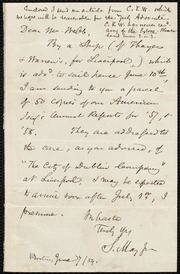 Enclosed I send an article from C.K.W. which
we hope will be seasonable for the Advocate.
C.K.W. has never
any of the
Dear Mr. Webb,
By a Ship (of Thayer
& Warren's, for Liverpool) which
is adv.d to sail hence June 10th
I am sending to you a parcel
of 50 copies of our American
Annual Reports for '57, &
'58. They are addressed
to the care of
"The City of Dublin Company"
at Liverpool, & may be expected
to arrive soon after July 1st, I
presume.
In haste
Truly Yrs
S. May Jr.
June 7/59.